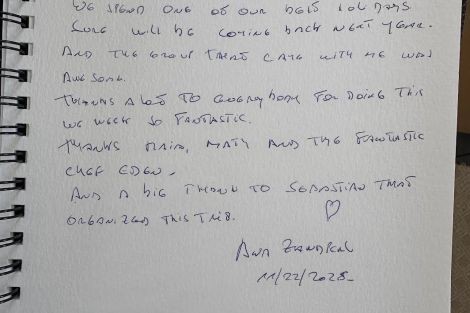 WE SPEND ONE OF OUR BEST HOLIDAYS
SURE WILL BE COMING BACK NEXT YEAR.
AND THE GROUP THAT CAME WITH ME WAS
AWESOME.
THANKS A LOT TO EVERYBODY FOR DOING THIS
WE WEEK SO FANTASTIC.
THANKS MATY AND THE FANTASTIC
CHEF EDEN.
AND A BIG THANK TO SEBASTIAN THAT
ORGANIZED THIS TRIP.
ANA
11/22/2025-